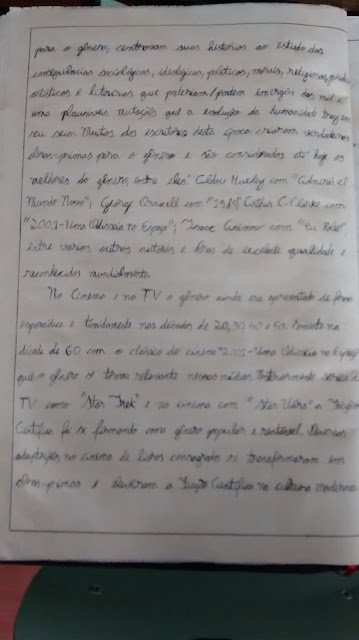 para o gênero, centravam suas histórias ao estudo das
consequências sociológicas, ideológicas, políticas, morais, religiosas,
artísticas e literárias que poderiam/podem emergir das mil e
uma plausíveis mutações que a evolução da humanidade traz em
seu seio. Muitos dos escritores desta época criaram verdadeiras
obras-primas para o gênero e são considerados até hoje os
melhores do gênero, entre eles: Aldous Huxley com "Admirável
Mundo Novo"; George Orwell com "1984"; Arthur C. Clarke com
"2001-Uma Odisseia no Espaço"; Isaac Asimov com "Eu Robô"
entre varios outros autores e obras de excelente qualidade e
reconhecidos mundialmente.
No Cinema e na TV o gênero ainda era apresentado de forma
esporádica e timidamente nas décadas de 20, 30, 40 e 50. Somente na
década de 60 com o clássico do cinema "2001-Uma Odisseia no Espaço"
que o gênero se torna relevante nessas mídias. Posteriormente series de
TV como "Star Trek" e no cinema com "Star Wars" a Ficção
Científica foi se firmando como gênero popular e rentável. Diversas
adaptações no cinema de livros consagrados se transformaram em
obras-primas e elevaram a Ficção Científica na cultura moderna